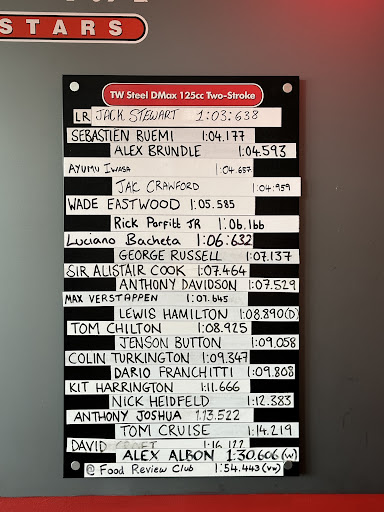 STARS
TW Steel DMax 125cc Two-Stroke
LR JACK STEWART 1:03:638
SEBASTIEN BUEMI 1:04.177
ALEX BRUNDLE 1:04.593
AYUMU IWASA 1:04.657
JAC CRAWFORD 1:04.959
WADE EASTWOOD 1:05.585
Rick Parfitt JR 1:06.166
Luciano Bacheta 1:06:632
GEORGE RUSSELL 1:07.137
SIR ALISTAIR COOK 1:07.464
ANTHONY DAVIDSON 1:07.529
MAX VERSTAPPEN 1:07.645
LEWIS HAMILTON 1:08.890(D)
TOM CHILTON 1:08.925
JENSON BUTTON 1:09.058
COLIN TURKINGTON 1:09.347
DARIO FRANCHITTI 1:09.808
KIT HARRINGTON 1:11.666
NICK HEIDFELD 1:12.383
ANTHONY JOSHUA 1:13.522
TOM CRUISE 1:14.219
DAVID 1:16.122
ALEX ALBON 1:30.606(W)
@ Food Review Club 1:54.443(VW)